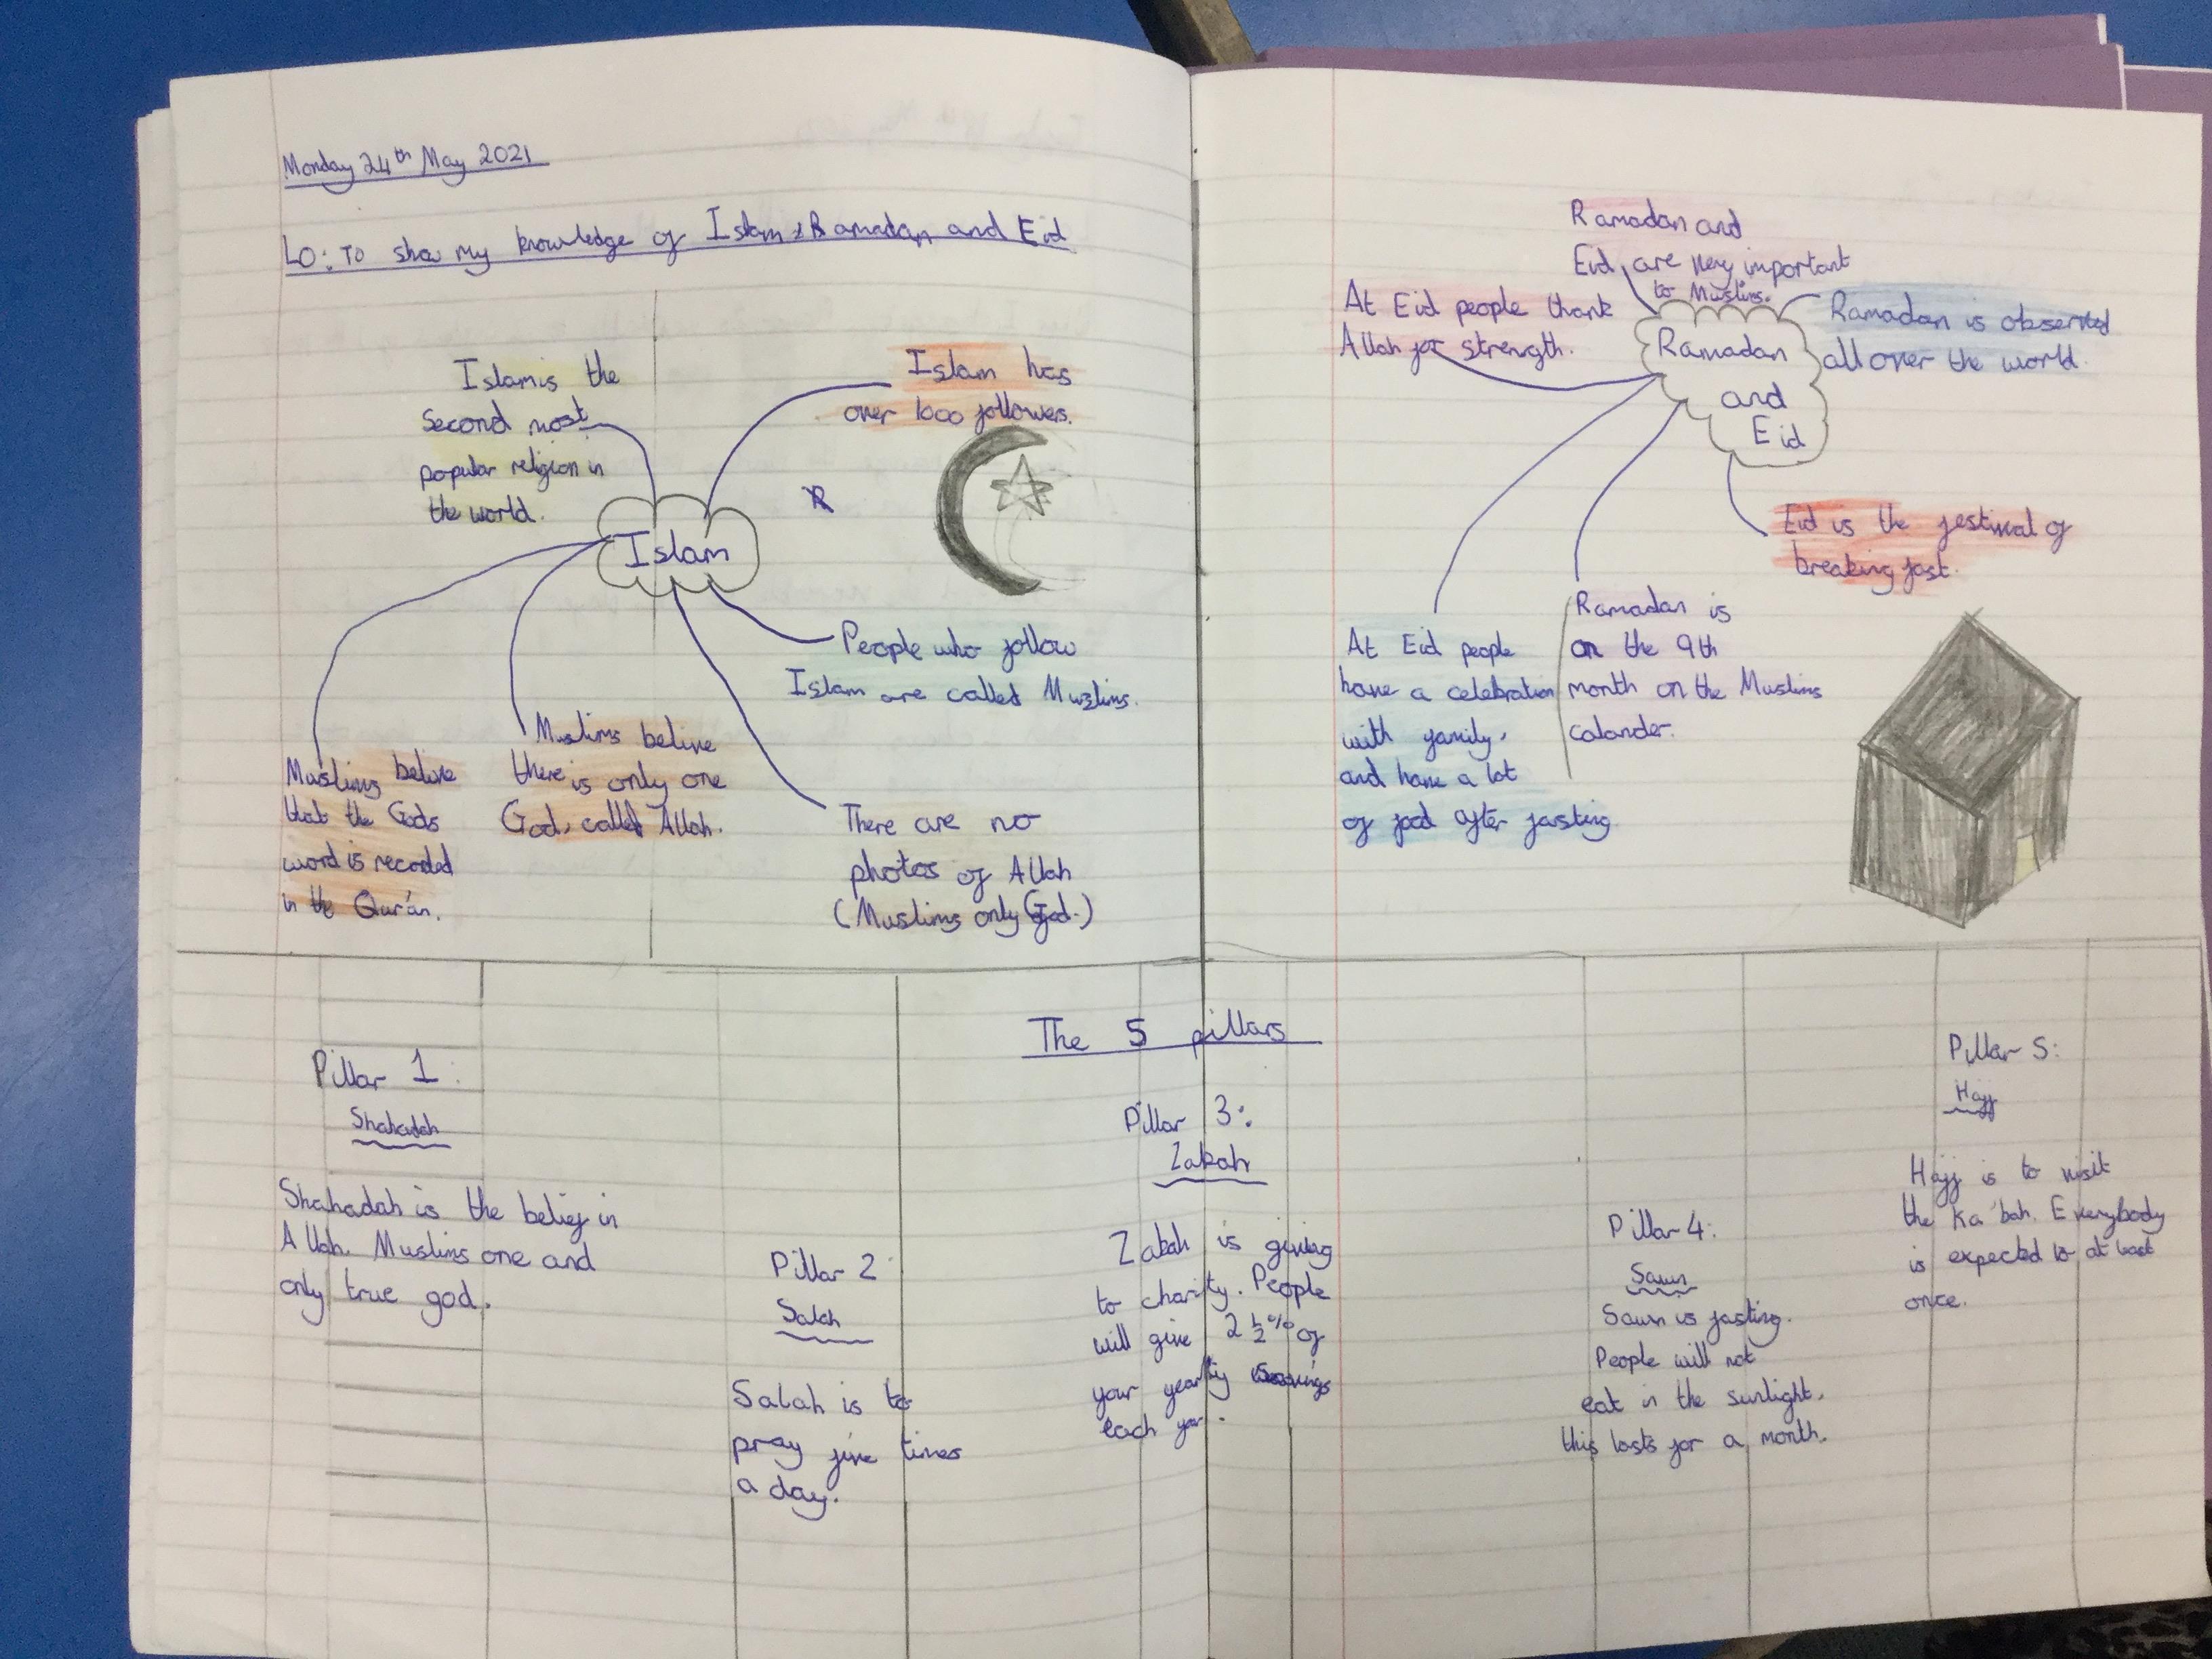 Monday 24th May 2021
LO: To show my knowledge of Islam, Ramadan and Eid
Islam is the
second most
popular religion in
the world.
Islam has
over 1000 followers.
R
Islam
People who follow
Islam are called Muslims.
Muslims belive
that the Gods
word is recorded
in the Qur'an.
Muslims belive
there is only one
God, called Allah.
There are no
photos of Allah
(Muslims only God.)
Ramadan and
Eid are very important
to Muslims.
At Eid people thank
Allah for strength.
Ramadan
and
Eid
Ramadan is observed
all over the world.
Eid is the festival of
breaking fast.
At Eid people
have a celebration
with family,
and have a lot
of food after fasting.
Ramadan is
on the 9th
month on the Muslims
calander.
The 5 pillars
Pillar 1:
Shahadah
Shahadah is the belief in
Allah. Muslims one and
only true god.
Pillar 2
Salah
Salah is to
pray five times
a day.
Pillar 3:
Zakah
Zakah is giving
to charity. People
will give 2 1/2 % of
your yearly savings
each year.
Pillar 4:
Sawn
Sawn is fasting.
People will not
eat in the sunlight.
this lasts for a month.
Pillar 5:
Hajj
Hajj is to visit
the Ka'bah. Everybody
is expected to at least
once.